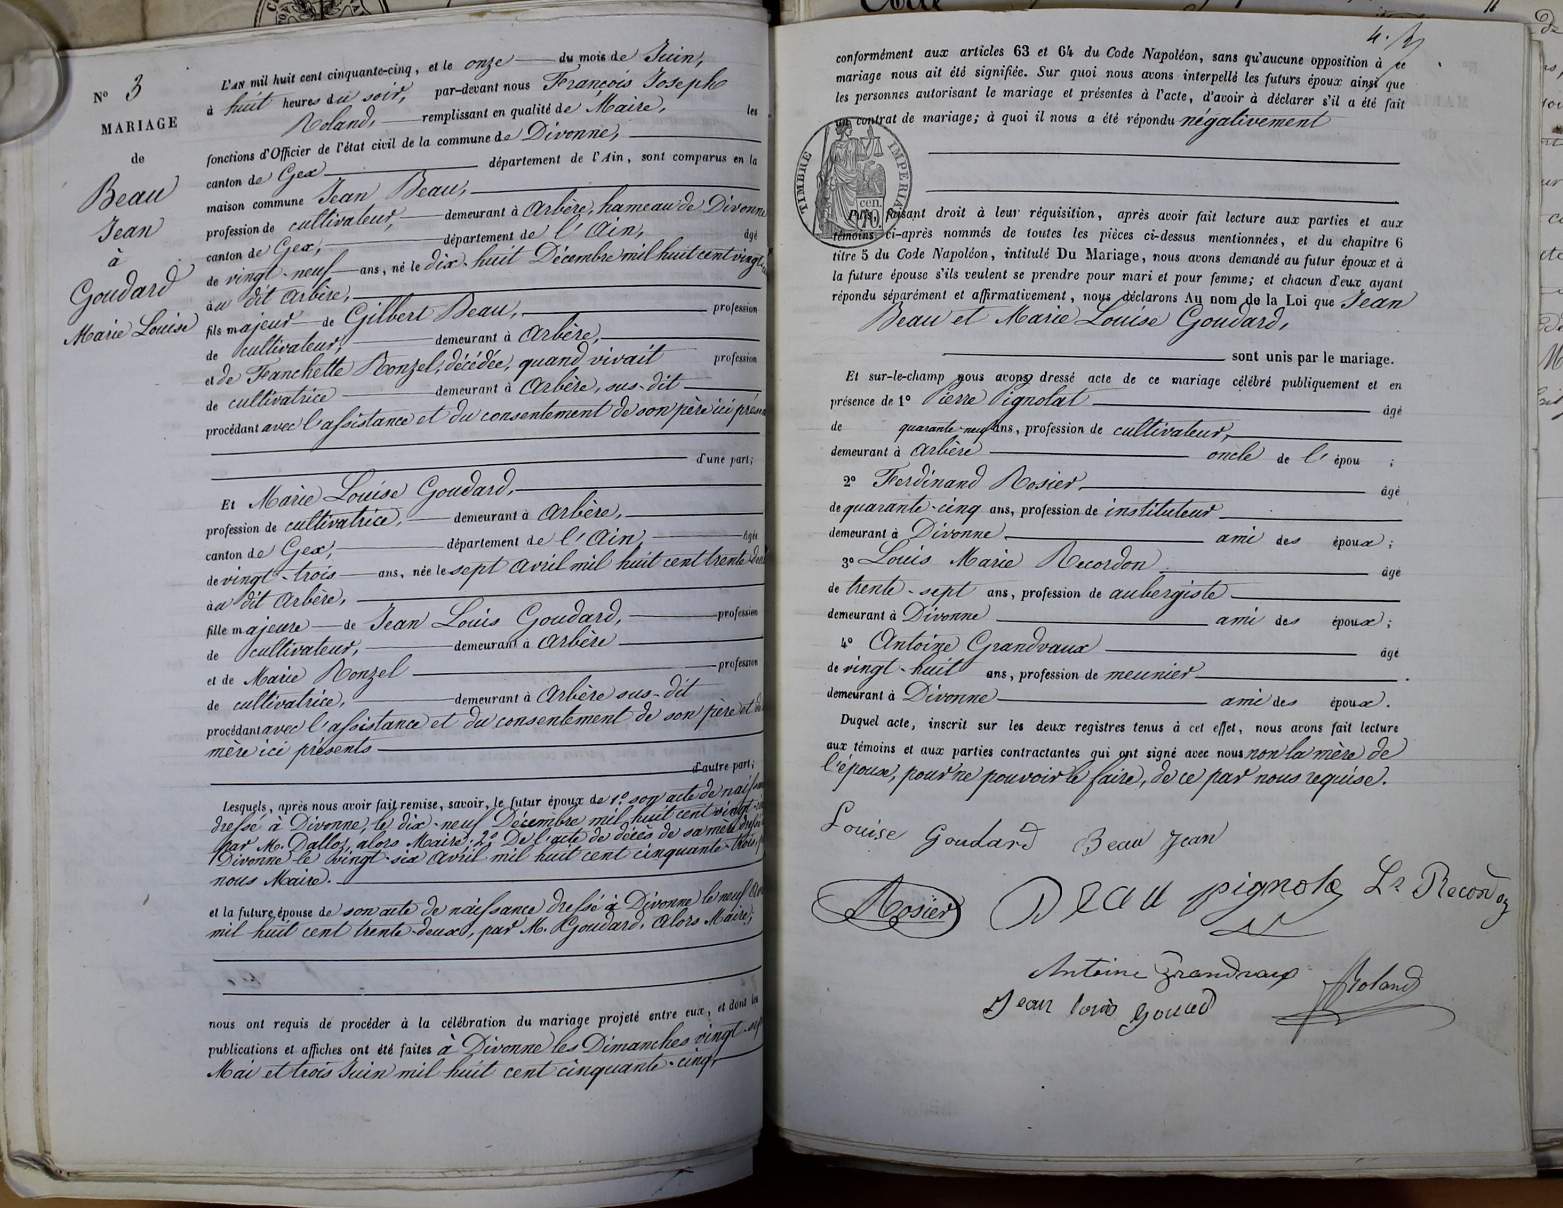 N° 3
MARIAGE
de
Beau
Jean
à
Goudard
Marie Louise
L'AN mil huit cent cinquante-cinq, et le onze du mois de Juin,
à huit heures du soir, par-devant nous François Joseph
Roland, remplissant en qualité de Maire, les
fonctions d'Officier de l'état civil de la commune de Divonne,
canton de Gex département de l'Ain, sont comparus en la
maison commune Jean Beau,
profession de cultivateur, demeurant à Arbère, hameau de Divonne
canton de Gex, département de l'Ain, âgé
de vingt-neuf ans, né le dix-huit Décembre mil huit cent vingt
au dit Arbère,
fils majeur de Gilbert Beau, profession
de cultivateur, demeurant à Arbère,
et de Franchette Ronzel, décédée, quand vivait profession
de cultivatrice demeurant à Arbère, sus-dit
procédant avec l'assistance et du consentement de son père ici présent
d'une part;
Et Marie Louise Goudard,
profession de cultivatrice, demeurant à Arbère,
canton de Gex, département de l'Ain, âgée
de vingt-trois ans, née le sept Avril mil huit cent trente deux
au dit Arbère,
fille majeure de Jean Louis Goudard, profession
de cultivateur, demeurant à Arbère
et de Marie Ronzel profession
de cultivatrice, demeurant à Arbère sus-dit
procédant avec l'assistance et du consentement de son père et de
mère ici présents
d'autre part;
Lesquels, après nous avoir fait remise, savoir, le futur époux de 1° son acte de naissance
dressé à Divonne, le dix-neuf Décembre mil huit cent vingt
par M. Dallos, alors Maire; 2° De l'acte de décès de sa mère dressé
Divonne le vingt-six Avril mil huit cent cinquante-trois,
nous Maire.
et la future épouse de son acte de naissance dressé à Divonne le neuf
mil huit cent trente-deux, par M. Goudard, Alors Maire;
nous ont requis de procéder à la célébration du mariage projeté entre eux, et dont les
publications et affiches ont été faites à Divonne les Dimanches vingt-sept
Mai et trois Juin mil huit cent cinquante-cinq,
conformément aux articles 63 et 64 du Code Napoléon, sans qu'aucune opposition à ce
mariage nous ait été signifiée. Sur quoi nous avons interpellé les futurs époux ainsi que
les personnes autorisant le mariage et présentes à l'acte, d'avoir à déclarer s'il a été fait
un contrat de mariage; à quoi il nous a été répondu négativement
TIMBRE IMPERIAL
cen.
70.
Puis, faisant droit à leur réquisition, après avoir fait lecture aux parties et aux
témoins ci-après nommés de toutes les pièces ci-dessus mentionnées, et du chapitre 6
titre 5 du Code Napoléon, intitulé Du Mariage, nous avons demandé au futur époux et à
la future épouse s'ils veulent se prendre pour mari et pour femme; et chacun d'eux ayant
répondu séparément et affirmativement, nous déclarons Au nom de la Loi que Jean
Beau et Marie Louise Goudard,
sont unis par le mariage.
Et sur-le-champ nous avons dressé acte de ce mariage célébré publiquement et en
présence de 1° Pierre Pignolat âgé
de quarante-neuf ans, profession de cultivateur,
demeurant à Arbère oncle de l'épou ;
2° Ferdinand Rosier, âgé
de quarante-cinq ans, profession de instituteur
demeurant à Divonne ami des époux;
3° Louis Marie Recordon âgé
de trente-sept ans, profession de aubergiste
demeurant à Divonne ami des époux;
4° Antoine Grandvaux âgé
de vingt-huit ans, profession de meunier
demeurant à Divonne ami des époux.
Duquel acte, inscrit sur les deux registres tenus à cet effet, nous avons fait lecture
aux témoins et aux parties contractantes qui ont signé avec nous non la mère de
l'épouse, pour ne pouvoir le faire, de ce par nous requise.
Louise Goudard Beau Jean
Rosier Beau pignola Ls Recordon
Antoine Grandvaux Roland
Jean louis goudard